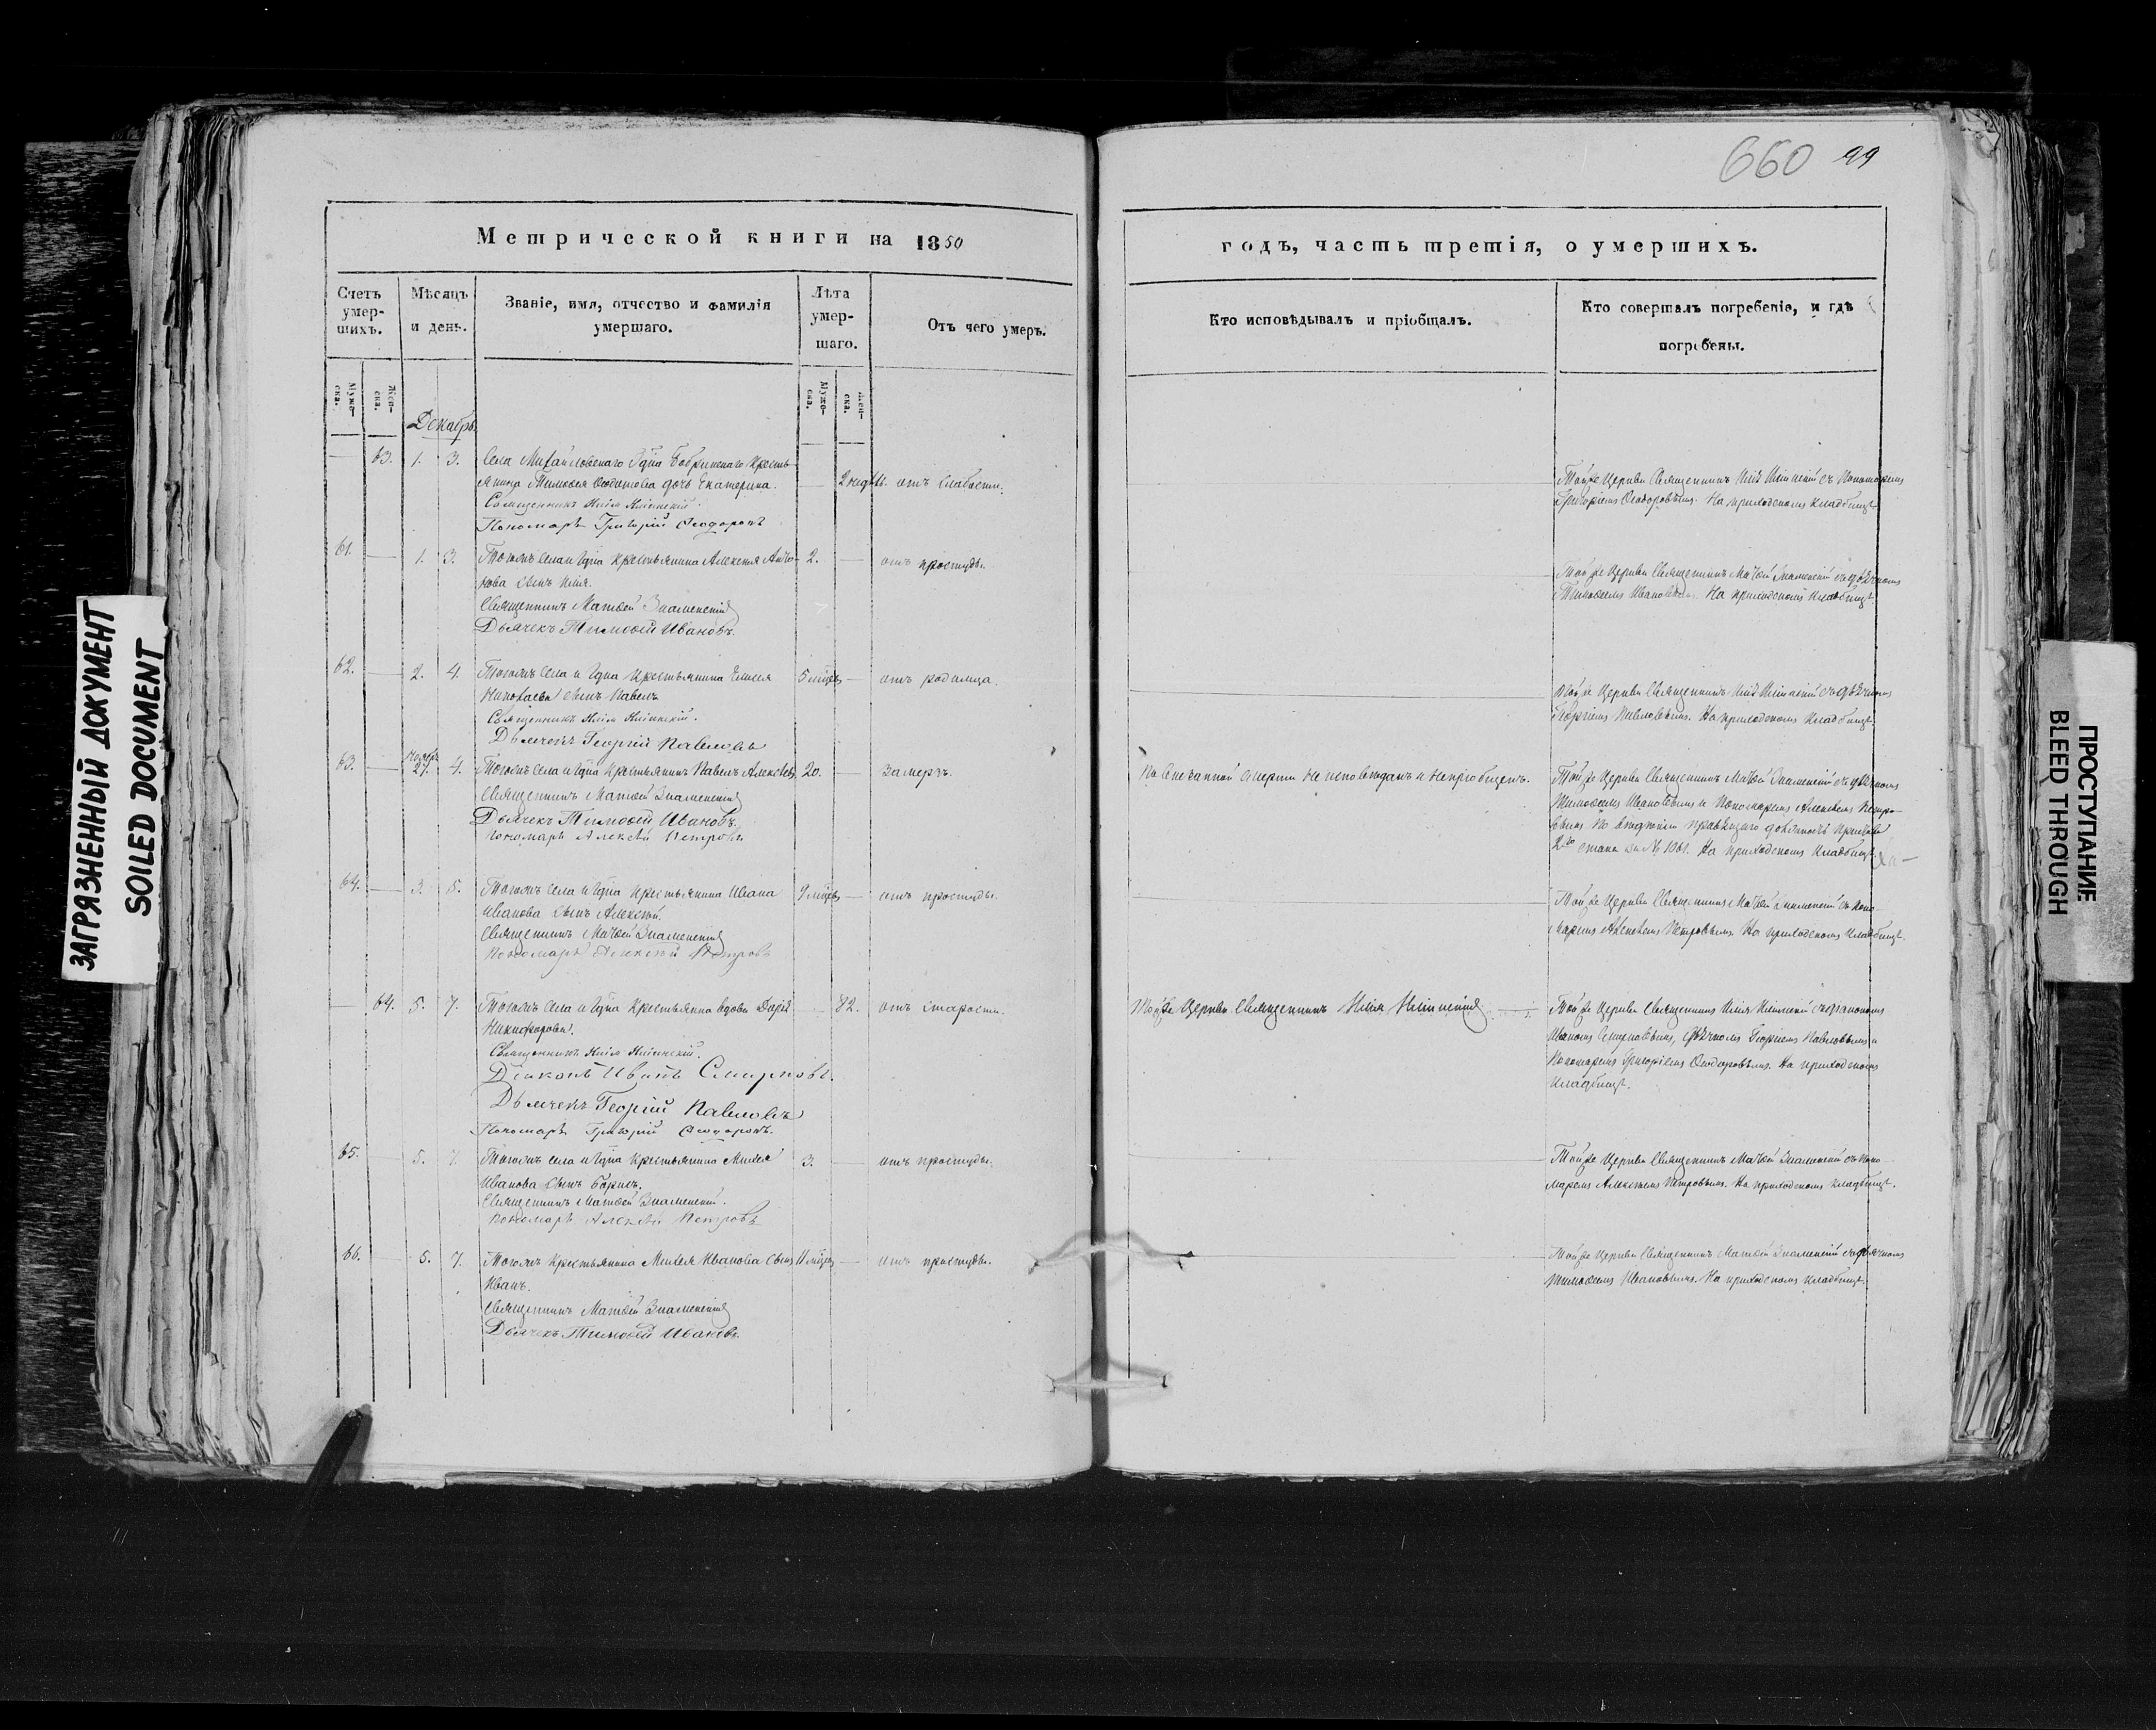 660 99
Метрической книги на 1850
годъ, часть третія, о умершихъ.
Счетъ умер-шихъ.
Мѣсяцъ и день.
Званіе, имя, отчество и фамилія умершаго.
Лѣта умер-шаго.
Отъ чего умеръ.
Кто исповѣдывалъ и пріобщалъ.
Кто совершалъ погребеніе, и гдѣ погребены.
Муже-ска.
Жен-ска.
Муже-ска.
Жен-ска.
Декабрь
63. 1. 3. Села Михайловскаго Гдна Бобринскаго Кресть-
янина Тимоѳея дочь Екатерина. 2 отъ слабости.
Священникъ Илія
Пономарь Григорій Ѳеодоровъ
Той же Церкви Священникъ Илія съ Пономаремъ
Григоріемъ Ѳеодоровымъ. На приходскомъ кладбищѣ
61. 1. 3. Тогожъ села и Гдна Крестьянина Алексія Анто- 2. отъ простуды.
нова сынъ Илія.
Священникъ Матѳей Знаменскій
Дьячекъ Тимоѳей Ивановъ.
Той же Церкви Священникъ Матѳей Знаменскій съ дьячкомъ
Тимоѳеемъ Ивановымъ. На приходскомъ кладбищѣ
62. 2. 4. Тогожъ Села и Гдна Крестьянина Елисея 5 мцевъ отъ родимца.
Николаева сынъ Павелъ
Священникъ Илія
Дьячекъ Георгій Павловъ
Той же Церкви Священникъ Илія съ дьячкомъ
Георгіемъ Павловымъ. На приходскомъ кладбищѣ
63. Ноябр. 27. 4. Тогожъ села и Гдна Крестьянинъ Павелъ Алексѣевъ 20. Замерзъ.
Священникъ Матѳей Знаменскій
Дьячекъ Тимоѳей Ивановъ.
Пономарь Алексѣй Петровъ
По внезапной смерти не исповѣданъ и непріобщенъ.
Той же Церкви Священникъ Матѳей Знаменскій съ дьячкомъ
Тимоѳеемъ Ивановымъ и Пономаремъ Алексѣемъ Петро-
вымъ по должность
2го стана за № 1061. На приходскомъ кладбищѣ
64. 3. 5. Тогожъ села и Гдна Крестьянина Ивана 9 мцевъ отъ простуды.
Иванова сынъ Алексѣй.
Священникъ Матѳей Знаменскій
Пономарь Алексѣй Петровъ
Той же Церкви Священникъ Матѳей Знаменскій съ Поно-
маремъ Алексѣемъ Петровымъ. На приходскомъ кладбищѣ.
64. 5. 7. Тогожъ села и Гдна Крестьянка вдова Дарія 82. отъ старости.
Никифорова.
Священникъ Илія
Діаконъ Иванъ Смирновъ.
Дьячекъ Георгій Павловъ
Пономарь Григорій Ѳеодоровъ.
Той же Церкви Священникъ Илія
Той же Церкви Священникъ Илія съ діакономъ
Иваномъ Смирновымъ, дьячкомъ Георгіемъ Павловымъ и
Пономаремъ Григоріемъ Ѳеодоровымъ. На приходскомъ
кладбищѣ.
65. 5. 7. Тогожъ села и Гдна Крестьянина 3. отъ простуды.
Иванова сынъ Борисъ.
Священникъ Матѳей Знаменскій.
Пономарь Алексѣй Петровъ
Той же Церкви Священникъ Матѳей Знаменскій съ Поно-
маремъ Алексѣемъ Петровымъ. На приходскомъ кладбищѣ.
66. 5. 7. Тогожъ Крестьянина Иванова сынъ 11 мцевъ отъ простуды.
Иванъ.
Священникъ Матѳей Знаменскій
Дьячекъ Тимоѳей Ивановъ.
Той же Церкви Священникъ Матѳей Знаменскій съ дьячкомъ
Тимоѳеемъ Ивановымъ. На приходскомъ кладбищѣ.
ЗАГРЯЗНЕННЫЙ ДОКУМЕНТ
SOILED DOCUMENT
ПРОСТУПАНИЕ
BLEED THROUGH